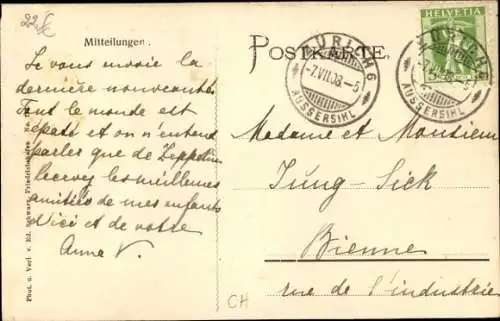 22 sc
Mitteilungen.
POSTKARTE.
ZÜRICH 6
-7.VII.08.-5
AUSSERSIHL
HELVETIA
5
ZÜRICH 6
-7.V
AUSSERSIHL
Je vous envoie la
dernière nouveauté.
Tout le monde est
épaté et on n'entend
parler que de Zeppelin
Recevez les meilleures
amitiés de mes enfants
d'ici et de votre
Anna V.
Madame et Monsieur
Jung-Sick
Bienne
rue de l'industrie
CH
Phot. u. Verl. v. Ed. Schwarz, Friedrichshafen